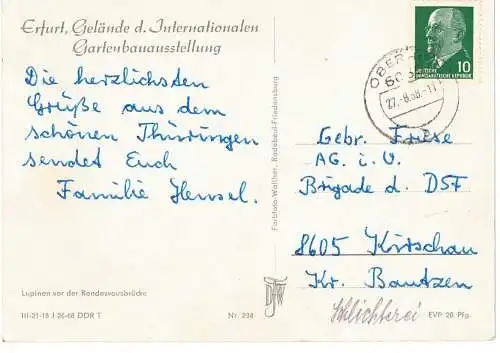 Erfurt, Gelände d. Internationalen
Gartenbauausstellung
Die herzlichsten
Grüße aus dem
schönen Thüringen
sendet Euch
Familie Hensel.
Lupinen vor der Rendezvousbrücke
III-21-18 J 26-68 DDR T
Nr. 234
Farbfoto-Walther, Radebeul-Friedensburg
10
DEUTSCHE
DEMOKRATISCHE REPUBLIK
27.-8.68.-17
Gebr. Friese
AG. i. V.
Brigade d. DSF
8605 Kirschau
Kr. Bautzen
Schlichterei
EVP 20 Pfg.